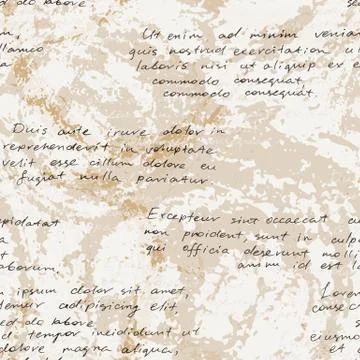 ed do labore
Ut enim ad minim venia
quis nostrud exercitation u
laboris nisi ut aliquip ex e
commodo consequat
commodo consequat.
ullamco
Duis aute irure dolor in
reprehenderit in voluptate
velit esse cillum dolore eu
fugiat nulla pariatur
Excepteur sint occaecat cu
non proident, sunt in culp
qui officia deserunt molli
anim id est l
upidatat
aborum.
ipsum dolor sit amet,
tetur adipisicing elit,
sed do labore
d tempor incididunt ut
dolore magna aliqua,
Lorem
conse
eiusm
et